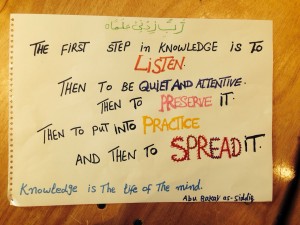 رَبِّ زِدْنِي عِلْمًا
THE FIRST STEP in KNOWLEDGE IS TO
LISTEN.
THEN TO BE QUIET AND ATTENTIVE.
THEN TO PRESERVE IT.
THEN TO PUT INTO PRACTICE
AND THEN TO SPREAD IT.
Knowledge is The life of The mind.
Abu Bakar as-Siddiq